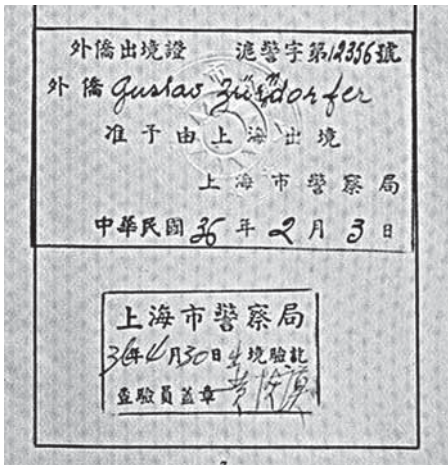 外僑出境證 滬警字第12356號
外僑 Gustav Zündorfer
准予由上海出境
上海市警察局
中華民國 36 年 2 月 3 日
上海市警察局
36年4月30日出境驗訖
查驗員蓋章